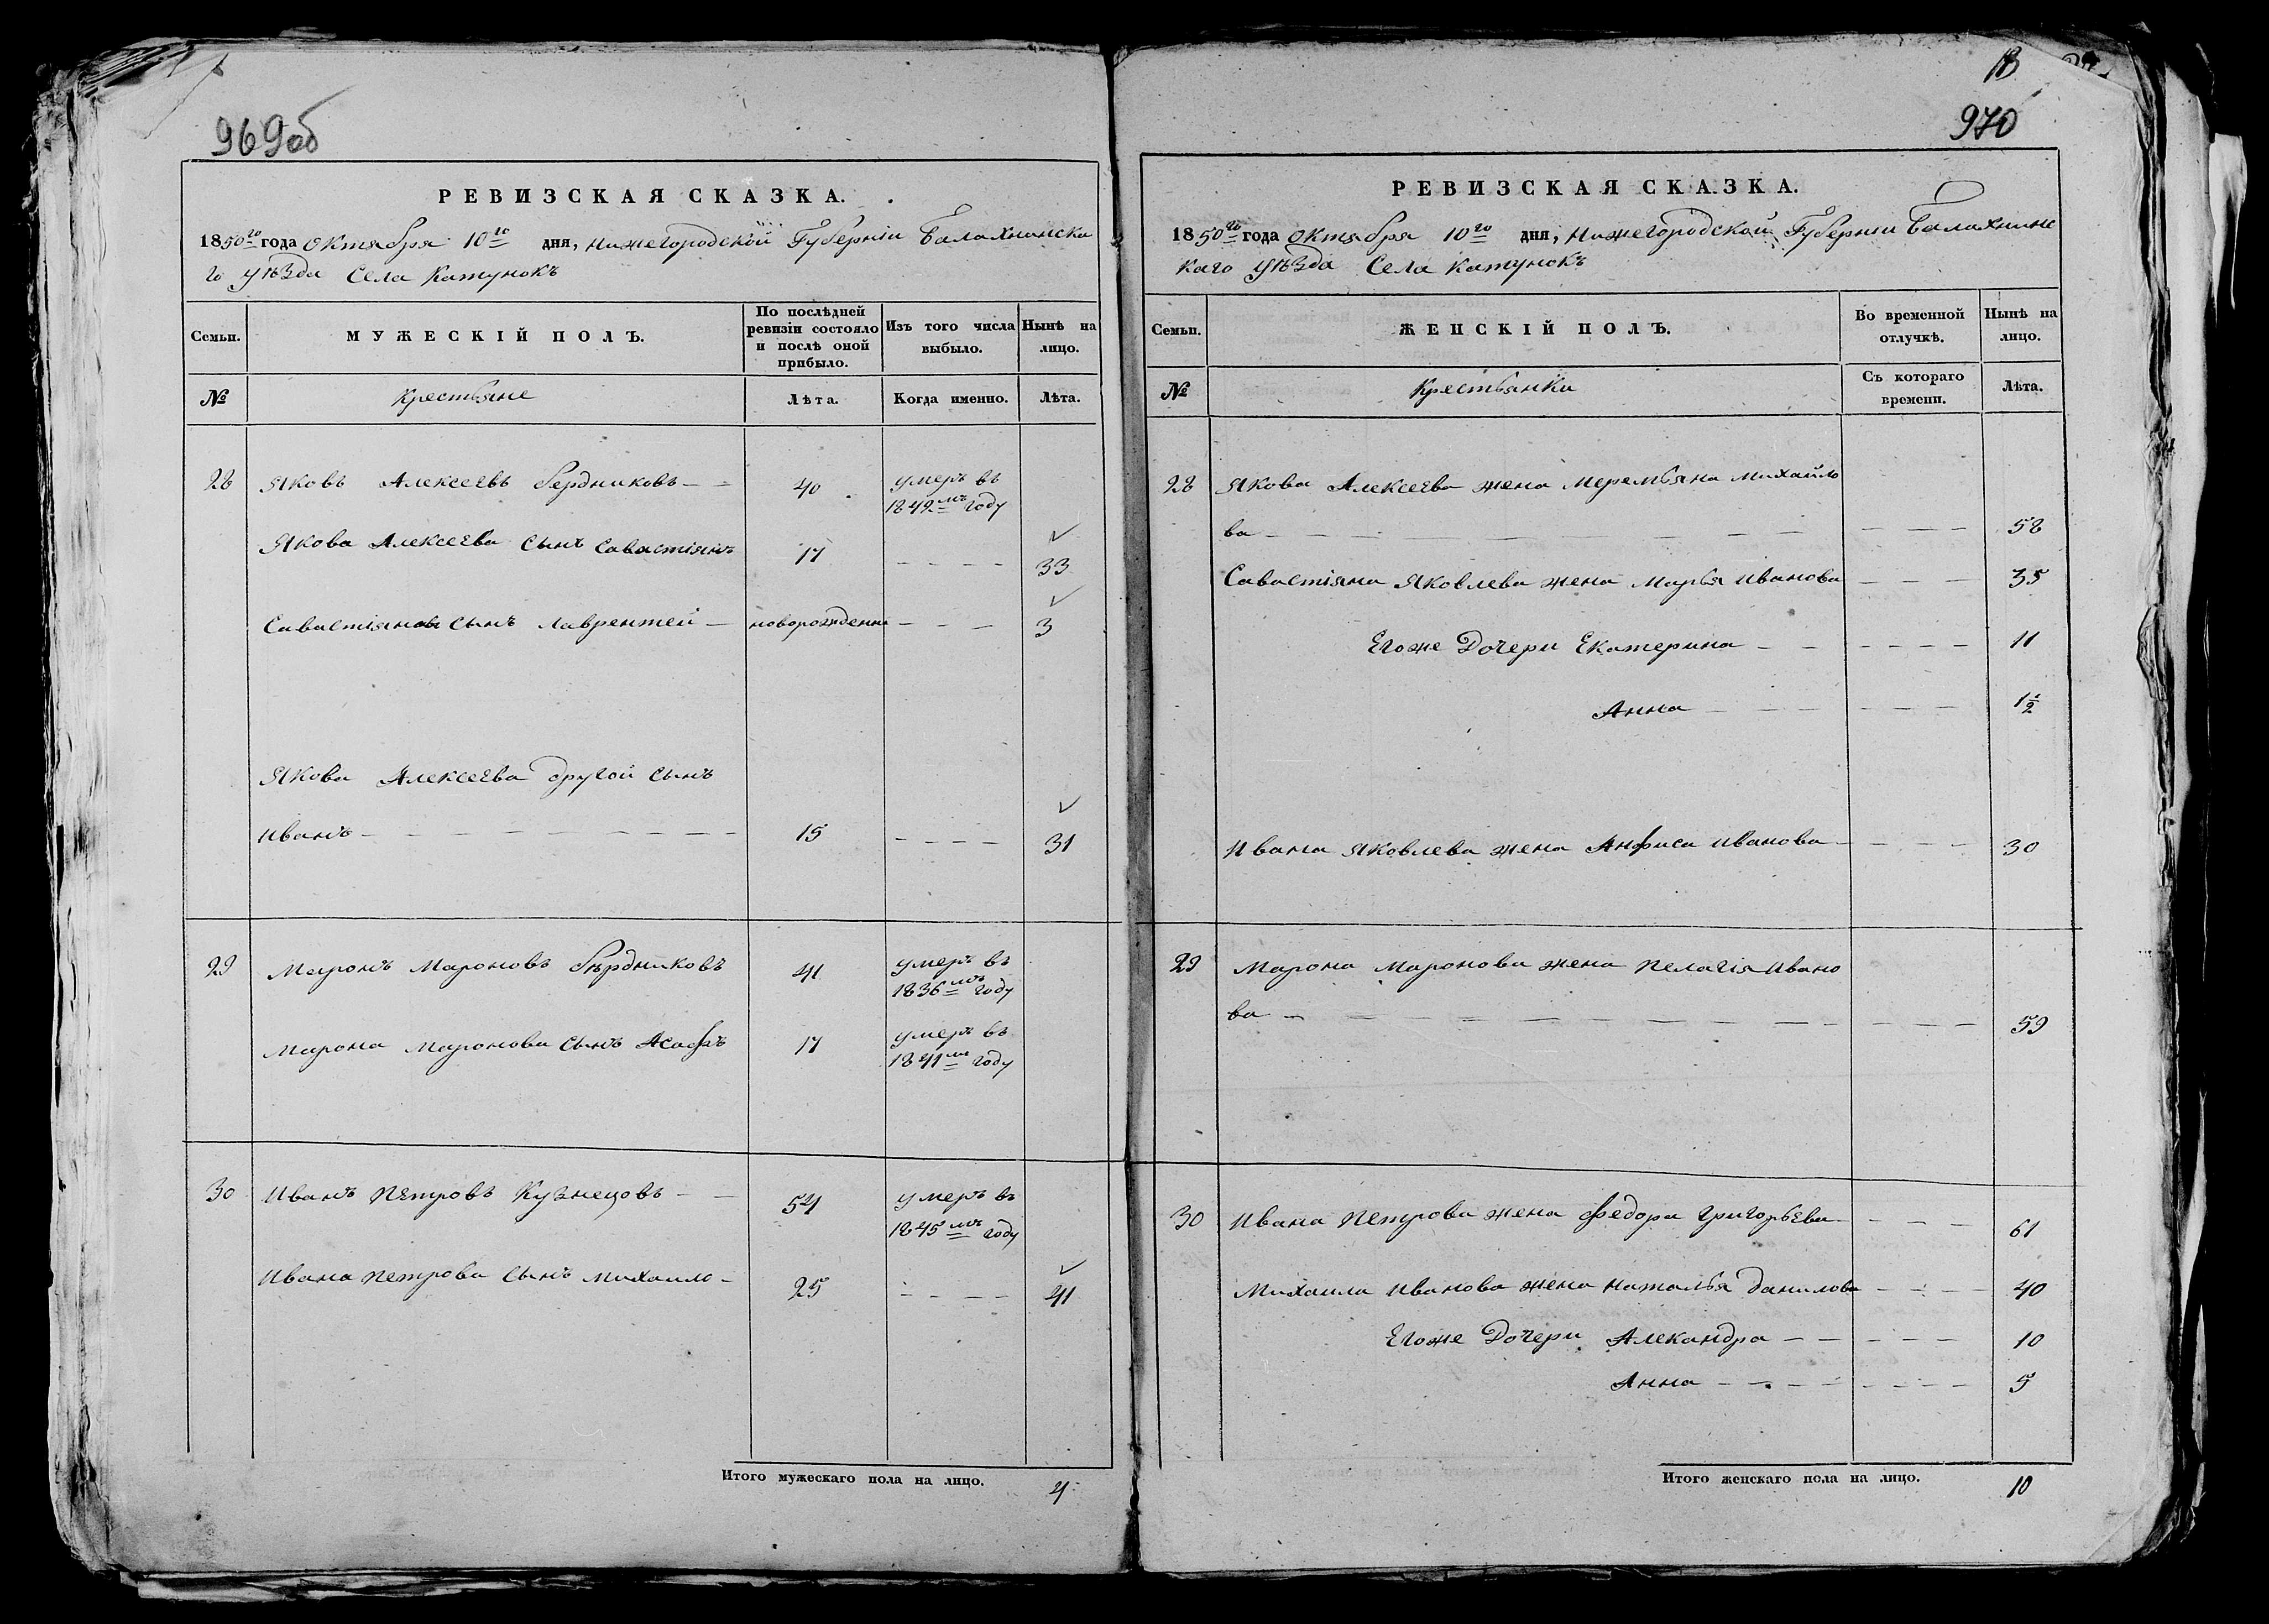 969об
РЕВИЗСКАЯ СКАЗКА.
1850го года Октября 10го дня, Нижегородской Губерніи Балахнинска
го уѣзда Села Катунокъ
Семьи.
МУЖЕСКІЙ ПОЛЪ.
По послѣдней ревизіи состояло и послѣ оной прибыло.
Изъ того числа выбыло.
Нынѣ на лицо.
№
Крестьяне
Лѣта.
Когда именно.
Лѣта.
28 Яковъ Алексеевъ Бердниковъ 40 умеръ въ
1842мъ году
Якова Алексеева сынъ Савастіянъ 17 33
Савастіяновъ сынъ Лаврентей новорожденн 3
Якова Алексеева другой сынъ
Иванъ 15 31
29 Маронъ Мароновъ Бердниковъ 41 умеръ въ
1836мъ году
Марона Маронова сынъ Асафъ 17 умеръ въ
1841мъ году
30 Иванъ Петровъ Кузнецовъ 54 умеръ въ
1845мъ году
Ивана Петрова сынъ Михаило 25 41
Итого мужескаго пола на лицо. 4
13
970
РЕВИЗСКАЯ СКАЗКА.
1850го года Октября 10го дня, Нижегородской Губерніи Балахнинс
каго уѣзда Села Катунокъ
Семьи.
ЖЕНСКІЙ ПОЛЪ.
Во временной отлучкѣ.
Нынѣ на лицо.
№
Крестьянки
Съ котораго времени.
Лѣта.
28 Якова Алексеева жена Меремьяна Михайло
ва 58
Савастіяна Яковлева жена Марья Иванова 35
Егоже Дочери Екатерина 11
Анна 1½
Ивана Яковлева жена Анфиса Иванова 30
29 Марона Маронова жена Пелагія Ивано
ва 59
30 Ивана Петрова жена Федора Григорьева 61
Михаила Иванова жена Наталья Данилова 40
Егоже Дочери Алекандра 10
Анна 5
Итого женскаго пола на лицо. 10